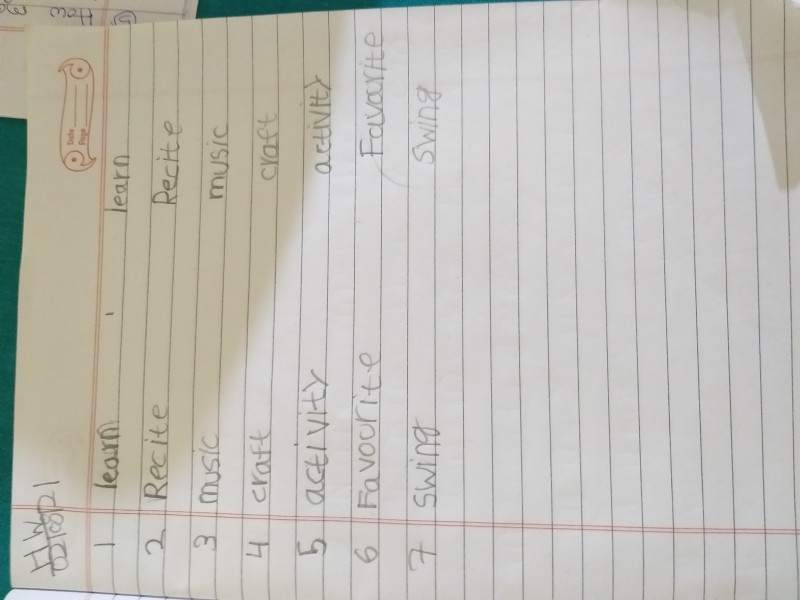 Date
Page
1 learn learn
2 Recite Recite
3 music music
4 craft craft
5 activity activity
6 Favourite Favarite
7 swing swing
How